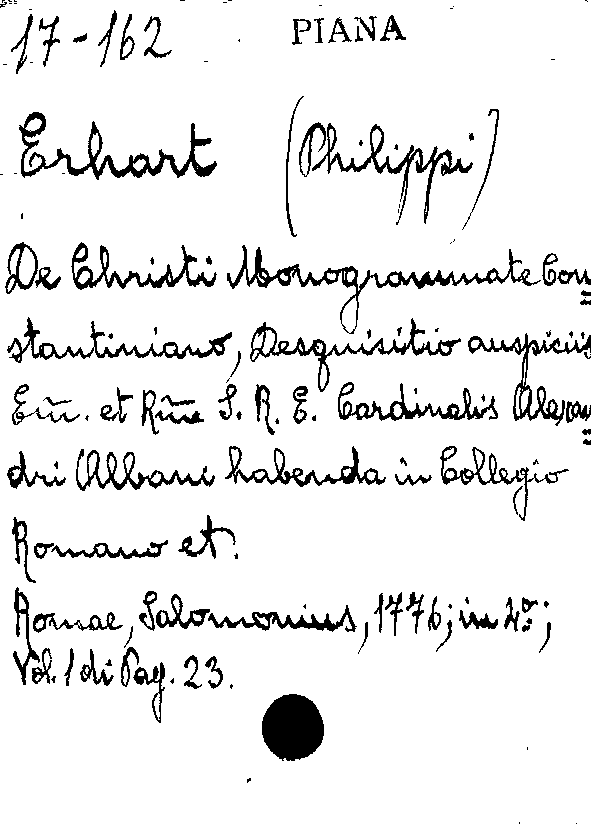 17-162 PIANA
Erhart (Philippi)
De Christi Monogrammate Con=
stantiniano, Desquisitio auspiciis
Em̃. et Rm̃e S. R. E. Cardinalis Alexan=
dri Albani habenda in Collegio
Romano et.
Romae, Salomonius, 1776; in 4º;
Vol. 1 di Pag. 23.